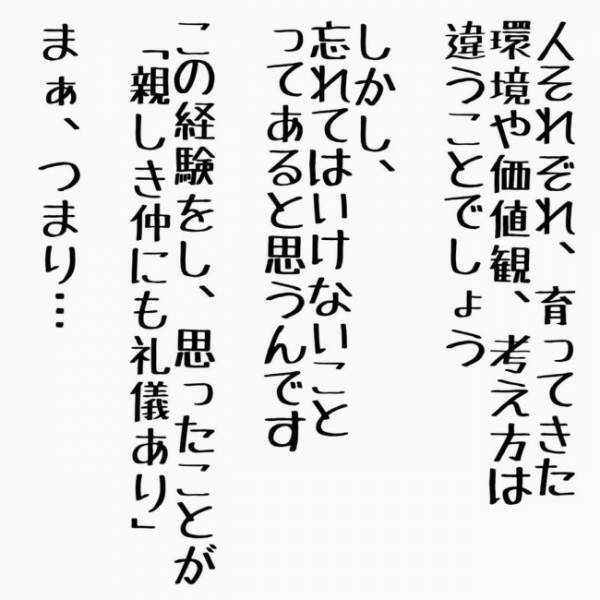 人それぞれ、育ってきた
環境や価値観、考え方は
違うことでしょう
しかし、
忘れてはいけないこと
ってあると思うんです
この経験をし、思ったことが
「親しき仲にも礼儀あり」
まぁ、つまり…